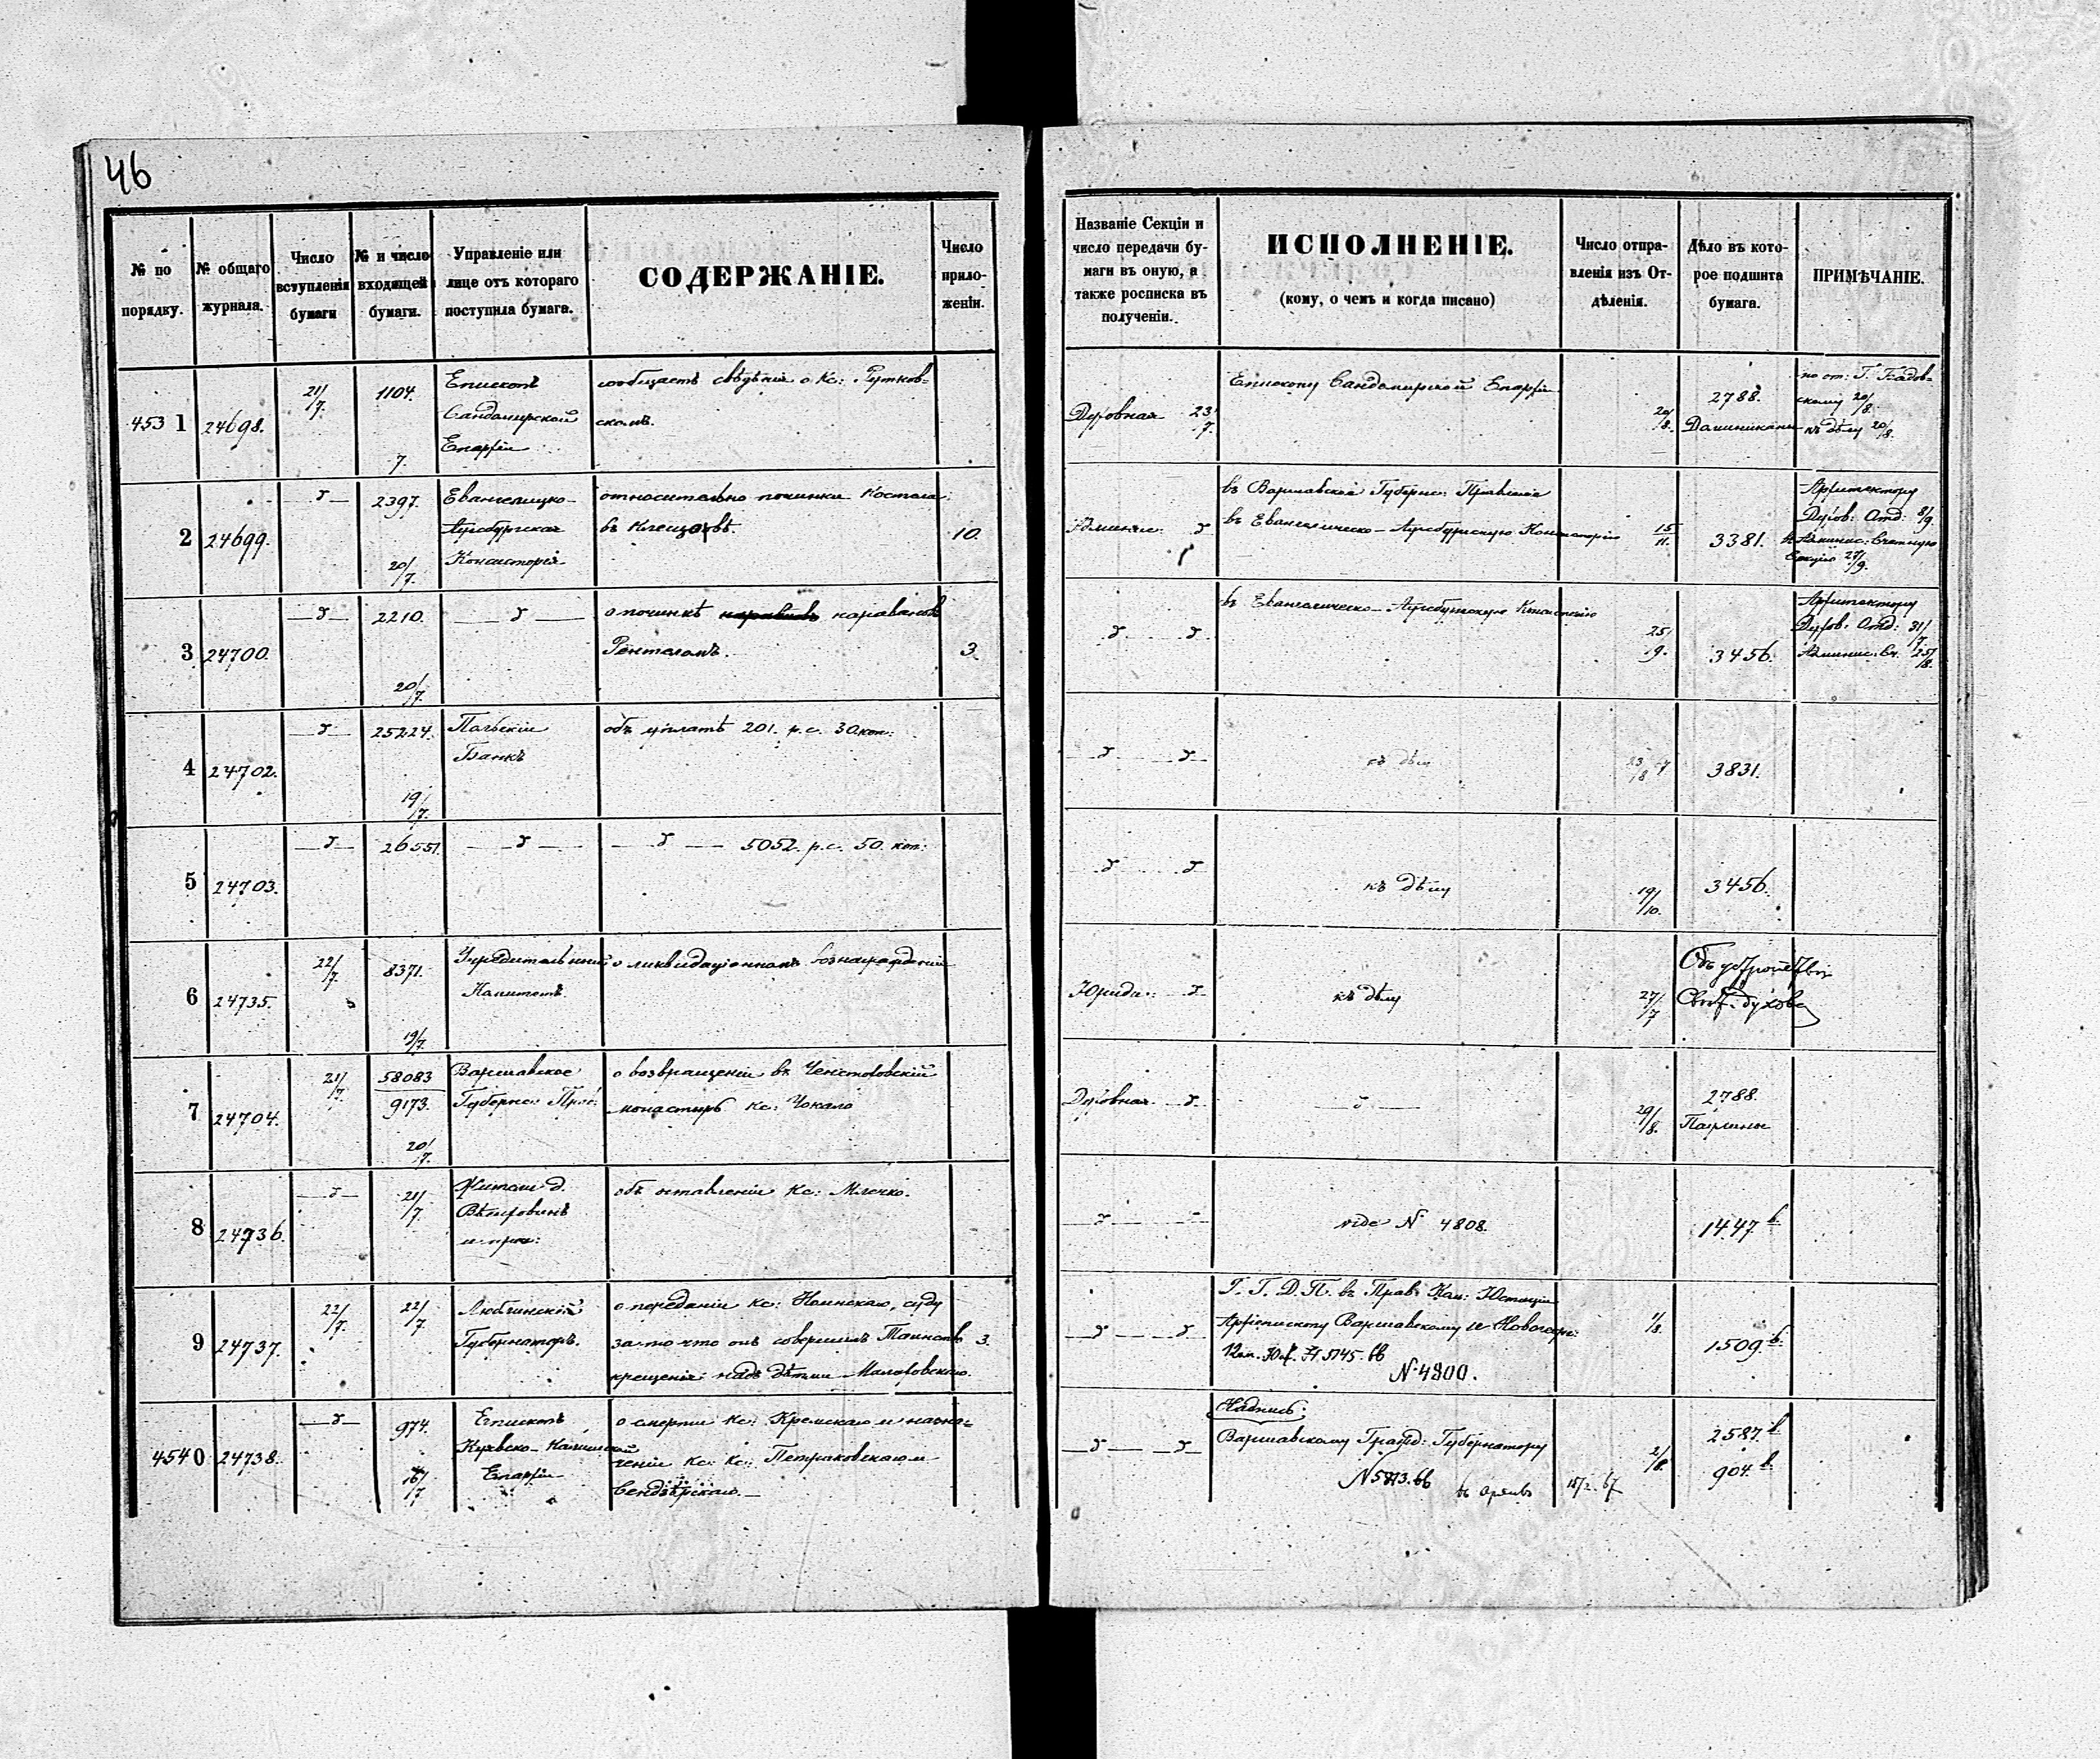 46
№ по порядку.
№ общаго журнала.
Число вступленія бумаги
№ и число входящей бумаги.
Управленіе или лице отъ котораго поступила бумага.
СОДЕРЖАНІЕ.
Число приложеніи.
Названіе Секціи и число передачи бумаги въ оную, а также росписка въ полученіи.
ИСПОЛНЕНІЕ.
(кому, о чемъ и когда писано)
Число отправленія изъ Отдѣленія.
Дѣло въ которое подшита бумага.
ПРИМѢЧАНІЕ.
4531
24698.
21/7.
1104.
7.
Епископъ
Сандомирской
Епархіи
сообщаетъ свѣдѣнія о Кс: Рутков=
скомъ.
Духовная 23/7.
Епископу Сандомирской Епархіи
20/8.
2788.
Доминикане
скому 20/8.
къ дѣлу 20/8.
2
24699.
2397.
20/7.
Евангелицко-
Аугсбургская
Консисторія
относительно починки Костела
въ Клещовѣ.
10.
въ Варшавское Губернс: Правленіе
въ Евангелическо-Аугсбургскую Консисторію
15/11.
3381.
Архитектору
Духов: Отд: 8/9.
Админис: Счетную
Секцію 27/9.
3
24700.
2210.
20/7.
о починкѣ
3.
въ Евангелическо-Аугсбургскую Консисторію
25/9.
3456.
Архитектору
Духов. Отд: 31/7
Админис: Сч. 25/8.
4
24702.
25224.
19/7.
Польскій
Банкъ
объ уплатѣ 201. р.с. 30 коп:
къ дѣлу
3831.
5
24703.
26551.
5052. р.с. 50. коп:
къ дѣлу
19/10.
3456.
6
24735.
22/7.
8371.
19/7.
Учредительный
Комитетъ.
о ликвидаціонномъ вознагражденіи
Юриди:
къ дѣлу
27/7
Объ устройствѣ
7
24704.
21/7.
58083
9173.
20/7.
Варшавское
Губернс: Прав:
о возвращеніи въ Ченстоховскій
монастырь Кс: Чокало
Духовная
29/8.
2788.
Паулины
8
24736.
21/7.
Жители д.
и проч:
объ оставленіи Кс: Млечко.
vide N 4808.
1447 b
9
24737.
22/7.
22/7.
Люблинскій
Губернаторъ.
о переданіи Кс: суду
за то что онъ совершилъ Таинство
крещенія надъ дѣтьми
3.
Г. Г. Д. П. въ Прав. Ком: Юстиціи
Архіепископу Варшавскому и Новогеор:
N 4900.
1/8.
1509 b.
4540
24738.
974.
16/7
Епископъ
Куявско-Калишской
Епархіи
о смерти Кс: Кремскаго и назна=
ченіи Кс: Кс: Петраковскаго и
Вендзѣрскаго.
Надпись:
Варшавскому Гражд: Губернатору
N 5813. 66 въ архивъ
2/8.
2587. b
904. b.